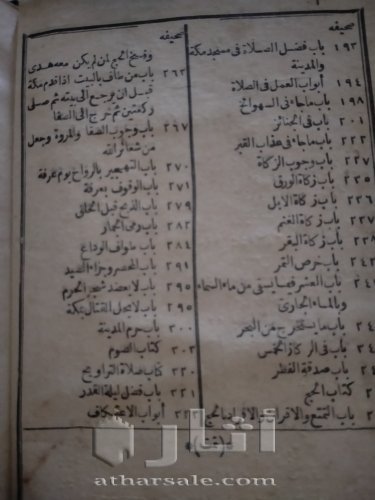 صحيفه
١٩٣ باب فضل الصلاة فى مسجد مكة
والمدينة
١٩٤ أبواب العمل فى الصلاة
١٩٨ باب ماجاء فى السهو
٢٠١ باب فى الجنائز
باب ماجاء فى عذاب القبر
باب وجوب الزكاة
باب زكاة الورق
باب زكاة الابل
باب زكاة الغنم
باب زكاة البقر
باب خرص التمر
باب العشر فيما يسقى من ماء السماء
وبالماء الجارى
باب ما يستخرج من البحر
باب فى الركاز الخمس
باب صدقة الفطر
كتاب الحج
باب التمتع والاقران والافراد بالحج
صحيفه
وفسخ الحج لمن لم يكن معه هدى
٢٦٣ باب من طاف بالبيت اذا قدم مكة
قبل ان يرجع الى بيته ثم صلى
ركعتين ثم خرج الى الصفا
٢٦٧ باب وجوب الصفا والمروة وجعل
من شعائر الله
٢٧٠ باب التهجير بالرواح يوم عرفة
٢٧١ باب الوقوف بعرفة
٢٧٩ باب الذبح قبل الحلق
٢٨٢ باب رمى الجمار
٢٨٤ باب طواف الوداع
٢٩١ باب المحصر وجزاء الصيد
٢٩٥ باب لا يعضد شجر الحرم
٢٩٥ باب لا يحل القتال بمكة
٣٠٠ باب حرم المدينة
٣٠٣ كتاب الصوم
٣٢٠ كتاب صلاة التراويح
٣٢١ باب فضل ليلة القدر
٣٢٣ أبواب الاعتكاف
(تمت)
أثار
atharsale.com